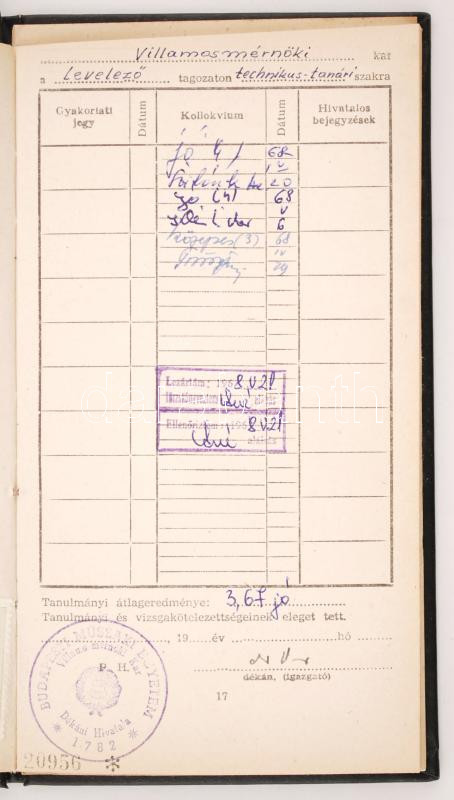 Villamosmérnöki kar
a Levelező tagozaton technikus-tanári szakra
Gyakorlati jegy Dátum Kollokvium Dátum Hivatalos bejegyzések
jó (4) 68
V
20
jó (4) 68
V
6
közepes (3) 68
IV
29
Lezártam: 1968 V. 21
aláírás
Ellenőriztem: 1968 V. 21
aláírás
Tanulmányi átlageredménye: 3,67 jó
Tanulmányi és vizsgakötelezettségeinek eleget tett.
19 év hó
P. H.
dékán, (igazgató)
BUDAPESTI MŰSZAKI EGYETEM
Villamosmérnöki Kar
Dékáni Hivatala
* 1782 *
17
20956 *